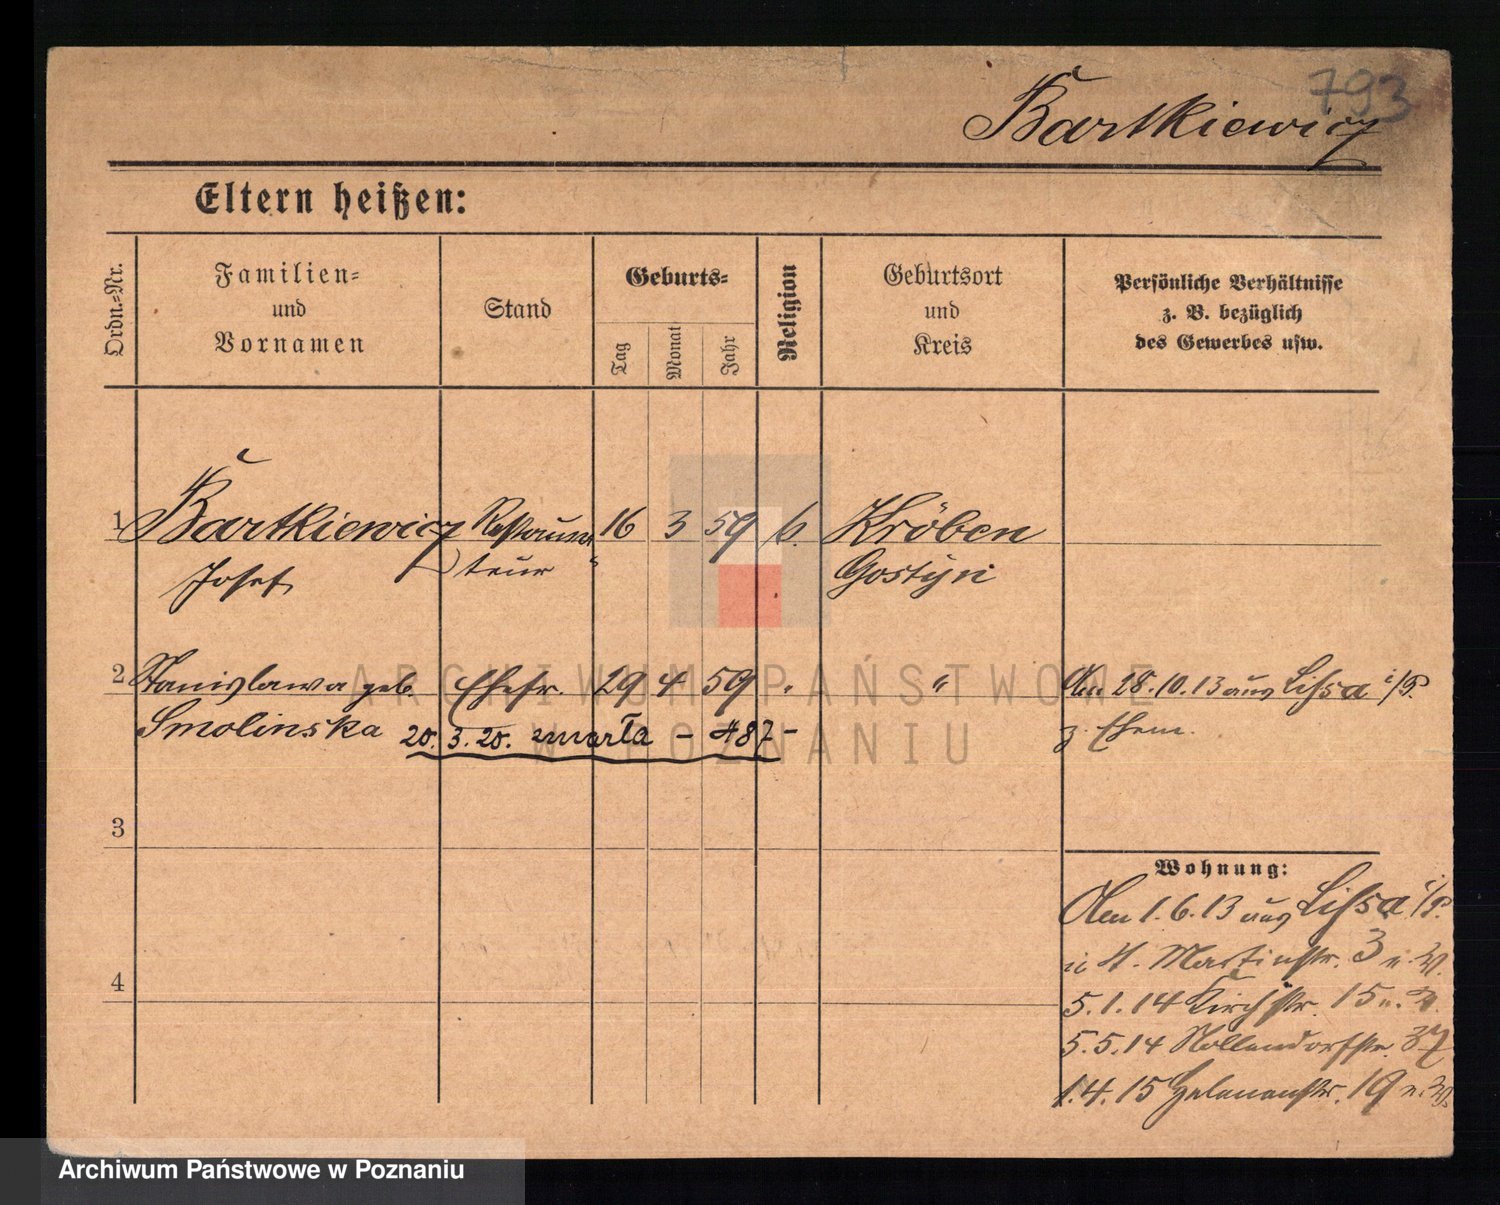 793
Bartkiewicz
Eltern heißen:
Ordn.-Nr.
Familien-
und
Vornamen
Stand
Geburts-
Tag
Monat
Jahr
Religion
Geburtsort
und
Kreis
Persönliche Verhältnisse
z. B. bezüglich
des Gewerbes usw.
1 Bartkiewicz Restaura 16 3 59 k. Kröben
Josef teur Gostyn
2 Stanislawa geb. Ehefr. 29 4 59 " " 28.10.13 aus Lissa i/P.
Smolinska 20.3.20. zmarła - 487 - z. Ehem.
3
Wohnung:
1.6.13 aus Lissa i/P.
Martinstr. 3
4
5.1.14 Kirchstr. 15
5.5.14 Nollendorfstr. 37
1.4.15 19
ARCHIWUM PAŃSTWOWE
W POZNANIU
Archiwum Państwowe w Poznaniu